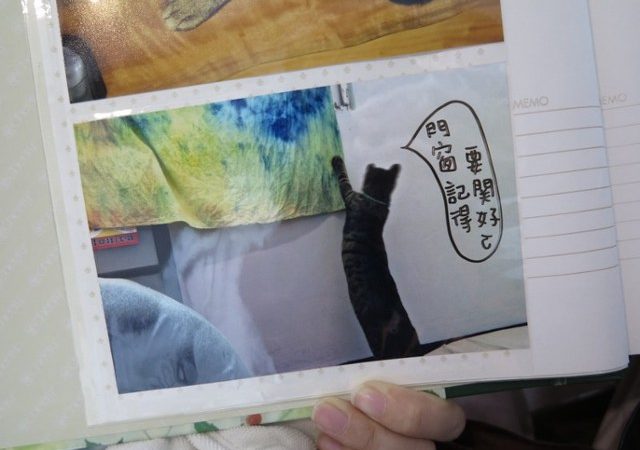 門窗記得
要關好ㄛ
MEMO
MEMO